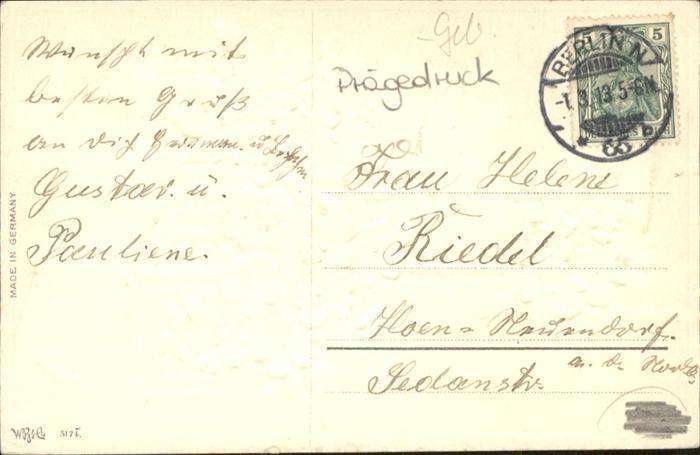 Wünscht mit
besten Gruß
an dich Herman. u.
Gustav. u.
Pauliene.
MADE IN GERMANY
5175.
Geb.
Prägedruck
5
BERLIN N.
-1.3.13.5-6N.
Frau Helene
Riedel
Hoen=Neuendorf.
a. d. Nordb.
Sedanstr.